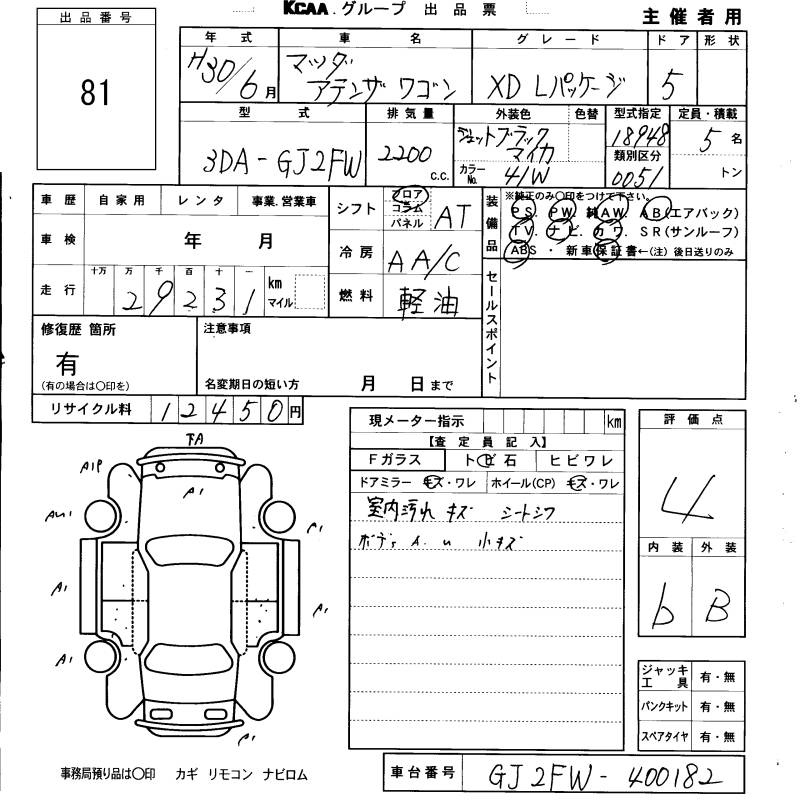 KCAA.グループ 出品票
主催者用
出品番号
81
年式 車名 グレード ドア 形状
H30/6月 マツダ アテンザワゴン XD Lパッケージ 5
型式 排気量 外装色 色替 型式指定 定員・積載
3DA-GJ2FW 2200 c.c. ジェットブラックマイカ 18948 5名
カラーNo. 41W 類別区分 0051 トン
車歴 自家用 レンタ 事業.営業車
シフト フロア コラム パネル AT
装備品 ※純正のみ〇印をつけて下さい。
PS. PW. 純AW. AB(エアバック)
TV. ナビ. カワ. SR(サンルーフ)
ABS・新車保証書←(注)後日送りのみ
車検 年 月
冷房 AA/C
走行 十万 万 千 百 十 一
29231 km マイル
燃料 軽油
セールスポイント
修復歴 箇所
有
(有の場合は〇印を)
注意事項
名変期日の短い方 月 日まで
リサイクル料 12450円
現メーター指示 km
評価点
4
【査定員記入】
Fガラス トビ石 ヒビワレ
ドアミラー キズ・ワレ ホイール(CP) キズ・ワレ
室内汚れ キズ シートシワ
ボデー A.u 小キズ
内装 外装
b B
FA
A1P
A1
A1
A1
A1
A1
A1
A1
ジャッキ工具 有・無
パンクキット 有・無
スペアタイヤ 有・無
事務局預り品は〇印 カギ リモコン ナビロム
車台番号 GJ2FW-400182